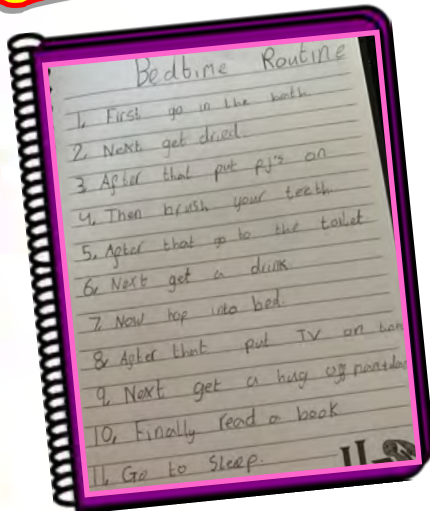 Bedtime Routine
1, First go in the bath
2, Next get dried
3, After that put PJ's on
4, Then brush your teeth
5, After that go to the toilet
6, Next get a drink
7, Now hop into bed.
8, After that put TV on
9, Next get a hug off
10, Finally read a book
11, Go to Sleep.